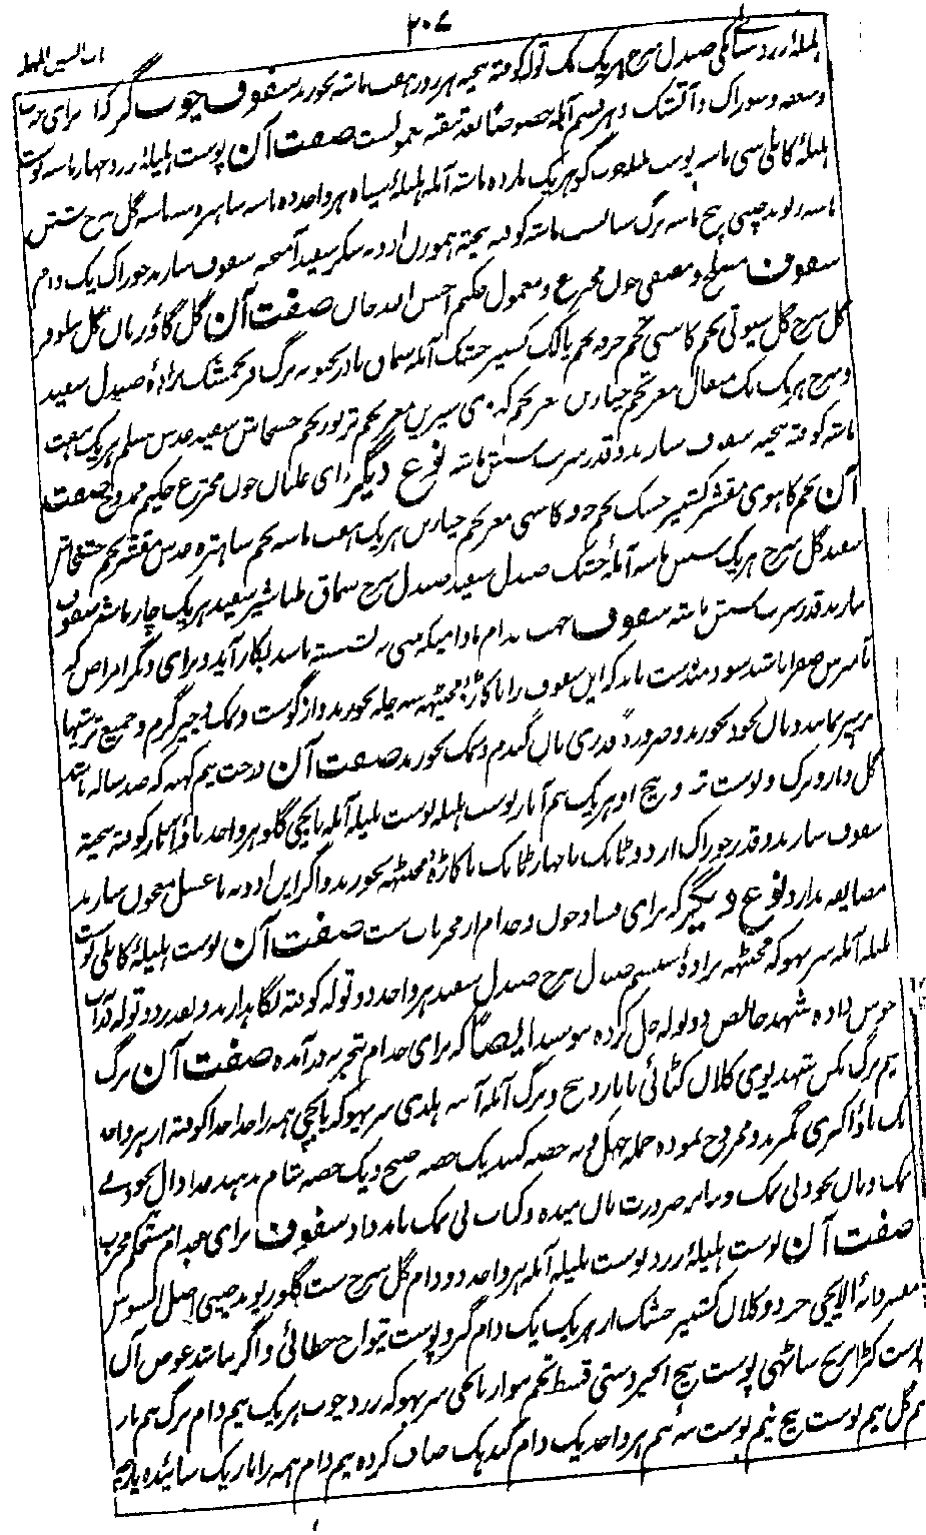 ۲۰۷
باب السین المهمله
هلیلهٔ زرد سنا مکی صندل سرخ هریک یک توله کوفته بیخته هر روز هفت ماشه بخورند سفوف چوب گز که برای
و آتشک و هر قسم آکله خصوصاً معمولست صفت آن پوست هلیلهٔ زرد چهار ماشه پوست
هلیلهٔ کابلی سی ماشه پوست هریک یازده ماشه آمله هلیلهٔ سیاه هر واحد ده ماشه شاهتره سه ماشه گل سرخ شش
ماشه ریوند چینی پنج ماشه برگ سنا بست ماشه کوفته بیخته هموزن ادویه شکر سفید آمیخته سفوف سازند خوراک یک دام
سفوف مسهل و مصفی خون مخترع و معمول حکیم احسن الله خان صفت آن گل گاؤزبان گل نیلوفر
گل سرخ گل سیوتی تخم کاسنی تخم خرفه تخم پالک کشنیز خشک آمله برگ فرنجمشک برادهٔ صندل سفید
و سرخ هریک یک مثقال مغز تخم خیارین مغز تخم کدوی شیرین مغز تخم تربوز تخم خشخاش سفید عدس مسلم هریک هفت
ماشه کوفته بیخته سفوف سازند و قدر شربت شش ماشه نوع دیگر برای غلیان خون مخترع حکیم ممدوح صفت
آن تخم کاهوی مقشر کشنیز خشک تخم خرفه کاسنی مغز تخم خیارین هریک هفت ماشه تخم شاهتره عدس مقشر تخم خشخاش
سفید گل سرخ هریک شش ماشه آملهٔ خشک صندل سفید صندل سرخ سماق طباشیر سفید هریک چار ماشه سفوف
سازند قدر شربت شش ماشه سفوف جهت جذام مادامیکه بینی نه نشسته باشد بکار آید و برای دیگر امراض که
باشد سودمندست باید که این سفوف را با کاژه مجیٹھه سه چله بخورند و از گوشت و نمک و چیز گرم و جمیع ترشیها
پرهیز نمایند و نان نخود بخورند و ضرورةً قدری نان گندم و نمک بخورند صفت آن درخت نیم کهنه که صد ساله باشد
گل و بار و برگ و پوست تنه و بیخ او هریک نیم آثار پوست هلیله پوست بلیله آمله بابچی گلو هر واحد پاؤ آثار کوفته بیخته
سفوف سازند و قدر خوراک از دو ٹانک تا چهار ٹانک با کاژهٔ مجیٹھه بخورند و اگر این ادویه با عسل معجون سازند
مضایقه ندارد نوع دیگر که برای فساد خون و جذام از مجربات ست صفت آن پوست هلیلهٔ کابلی پوست
بلیله آمله سرپهوکه مجیٹھه برادهٔ سیسم صندل سرخ صندل سفید هر واحد دو توله کوفته نگاهدارند و بقدر دو توله در آب
جوش داده شهد خالص دو توله حل کرده نوشند ایضاً که برای جذام بتجربه درآمده صفت آن برگ
نیم برگ کلان کٹائی با بار و بیخ و برگ آمله آنبه هلدی سرپهوکه بابچی همه را جدا جدا کوفته از هر واحد
یک پاؤ اکبری بگیرند و ممزوج نموده جمله چهل و نه حصه کنند یک حصه صبح و یک حصه شام بدهند غذا دال نخود بی
نمک و نان نخود بی نمک و بنابر ضرورت نان میده و کباب بی نمک باید داد سفوف برای جذام مستحکم مجرب
صفت آن پوست هلیلهٔ زرد پوست بلیله آمله هر واحد دو دام گل سرخ ست گلو ریوند چینی اصل السوس
مقشر دانهٔ الایچی خرد و کلان کشنیز خشک از هریک یک دام گیرو پوست تیواج خطائی و اگر نباشد عوض آن
پوست کڑا بیخ ساٹهی پوست بیخ انجیر دشتی قسط تخم پنوار بابچی سرپهوکه زرد چوب هریک نیم دام برگ نیم بار
نیم گل نیم پوست بیخ نیم پوست تنه نیم هر واحد یک دام گندهک صاف کرده نیم دام همه را باریک سائیده